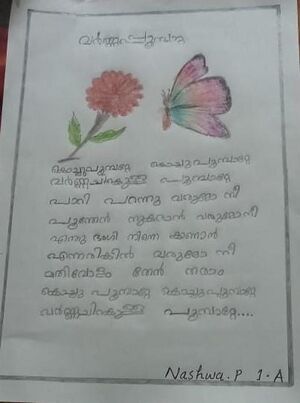 വർണ്ണപ്പൂമ്പാറ്റ
കൊച്ചുപൂമ്പാറ്റേ കൊച്ചുപൂമ്പാറ്റേ
വർണ്ണചിറകുള്ള പൂമ്പാറ്റേ
പാറി പറന്നു വരുമോ നീ
പൂന്തേൻ നുകരാൻ വരുമോനീ
എന്തു ഭംഗി നിന്നെ കാണാൻ
എന്നരികിൽ വരുമോ നീ
മതിവോളം തേൻ തരാം
കൊച്ചു പൂമ്പാറ്റേ കൊച്ചുപൂമ്പാറ്റേ
വർണ്ണചിറകുള്ള പൂമ്പാറ്റേ....
Nashwa.P 1.A